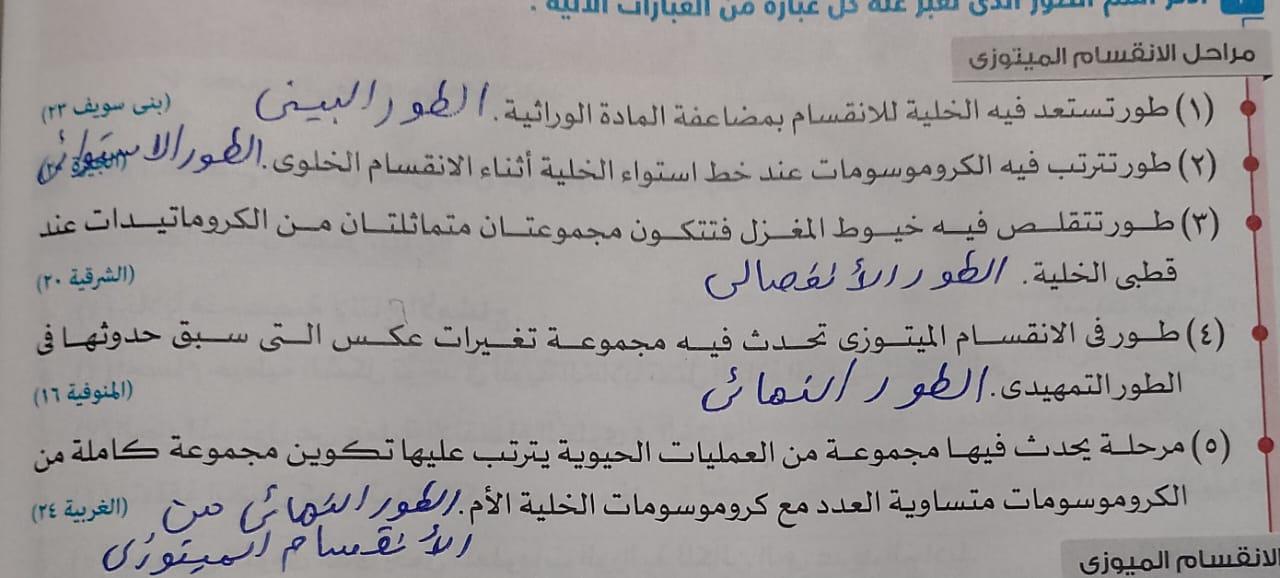 اسم الطور الذى تعبر عنه كل عبارة من العبارات الآتية :
مراحل الانقسام الميتوزى
(١) طور تستعد فيه الخلية للانقسام بمضاعفة المادة الوراثية. الطور البينى (بنى سويف ٢٣)
(٢) طور تترتب فيه الكروموسومات عند خط استواء الخلية أثناء الانقسام الخلوى. الطور الاستوائى
(٣) طور تتقلص فيه خيوط المغزل فتتكون مجموعتان متماثلتان من الكروماتيدات عند
قطبى الخلية. الطور الأنفصالى (الشرقية ٢٠)
(٤) طور فى الانقسام الميتوزى تحدث فيه مجموعة تغيرات عكس التى سبق حدوثها فى
الطور التمهيدى. الطور النهائى (المنوفية ١٦)
(٥) مرحلة يحدث فيها مجموعة من العمليات الحيوية يترتب عليها تكوين مجموعة كاملة من
الكروموسومات متساوية العدد مع كروموسومات الخلية الأم. الطور النهائى من (الغربية ٢٤)
الأنقسام الميتوزى
الانقسام الميوزى